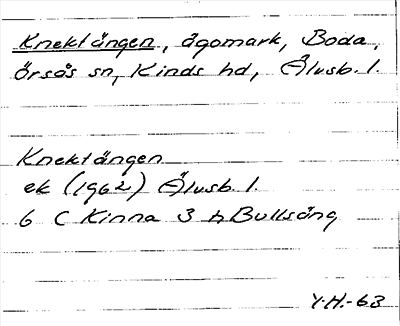 Knektängen, ägomark, Boda,
Örsås sn, Kinds hd, Älvsb. l.
Knektängen
ek (1962) Älvsb. l.
6 C Kinna 3 h Bullsäng
Y.H.-63